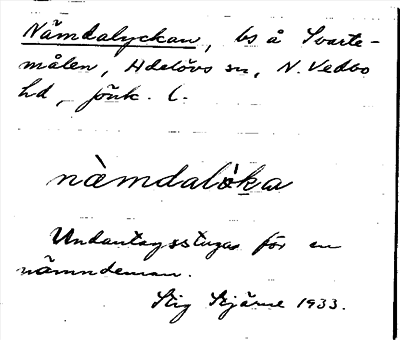 Nämdalyckan, bs å Svarte-
målen, Adelövs sn, N. Vedbo
hd, Jönk. l.
nàmdalȯ̀ka
Undantagsstugas för en
nämndeman.
Stig Stjärne 1933.